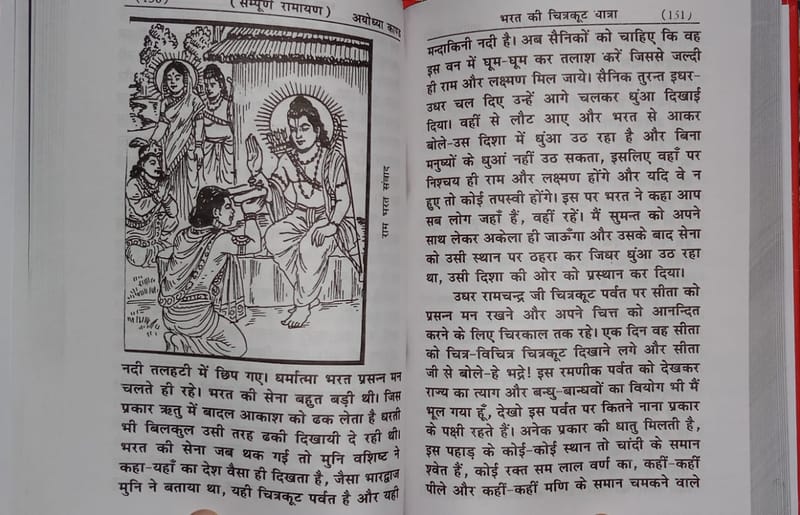 (सम्पूर्ण रामायण)
अयोध्या काण्ड
राम भरत संवाद
नदी तलहटी में छिप गए। धर्मात्मा भरत प्रसन्न मन
चलते ही रहे। भरत की सेना बहुत बड़ी थी। जिस
प्रकार ऋतु में बादल आकाश को ढक लेता है धरती
भी बिलकुल उसी तरह ढकी दिखायी दे रही थी।
भरत की सेना जब थक गई तो मुनि वशिष्ट ने
कहा-यहाँ का देश वैसा ही दिखता है, जैसा भारद्वाज
मुनि ने बताया था, यही चित्रकूट पर्वत है और यही
भरत की चित्रकूट यात्रा
(151)
मन्दाकिनी नदी है। अब सैनिकों को चाहिए कि वह
इस वन में घूम-घूम कर तलाश करें जिससे जल्दी
ही राम और लक्ष्मण मिल जाये। सैनिक तुरन्त इधर-
उधर चल दिए उन्हें आगे चलकर धुंआ दिखाई
दिया। वहीं से लौट आए और भरत से आकर
बोले-उस दिशा में धुंआ उठ रहा है और बिना
मनुष्यों के धुआं नहीं उठ सकता, इसलिए वहाँ पर
निश्चय ही राम और लक्ष्मण होंगे और यदि वे न
हुए तो कोई तपस्वी होंगे। इस पर भरत ने कहा आप
सब लोग जहाँ हैं, वहीं रहें। मैं सुमन्त को अपने
साथ लेकर अकेला ही जाऊँगा और उसके बाद सेना
को उसी स्थान पर ठहरा कर जिधर धुंआ उठ रहा
था, उसी दिशा की ओर को प्रस्थान कर दिया।
उधर रामचन्द्र जी चित्रकूट पर्वत पर सीता को
प्रसन्न मन रखने और अपने चित्त को आनन्दित
करने के लिए चिरकाल तक रहे। एक दिन वह सीता
को चित्र-विचित्र चित्रकूट दिखाने लगे और सीता
जी से बोले-हे भद्रे! इस रमणीक पर्वत को देखकर
राज्य का त्याग और बन्धु-बान्धवों का वियोग भी मैं
भूल गया हूँ, देखो इस पर्वत पर कितने नाना प्रकार
के पक्षी रहते हैं। अनेक प्रकार की धातु मिलती है,
इस पहाड़ के कोई-कोई स्थान तो चांदी के समान
श्वेत हैं, कोई रक्त सम लाल वर्ण का, कहीं-कहीं
पीले और कहीं-कहीं मणि के समान चमकने वाले